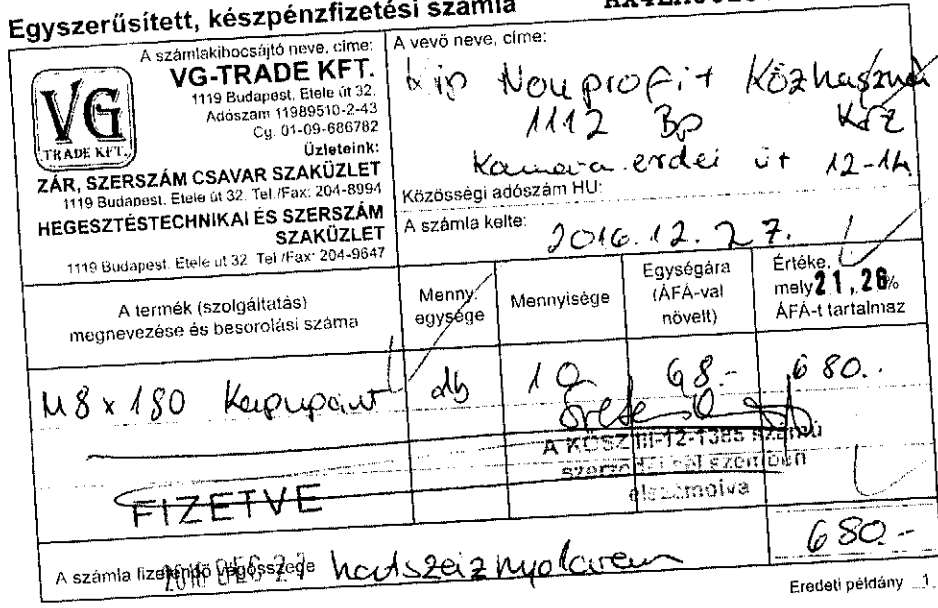 Egyszerűsített, készpénzfizetési számla
A számlakibocsájtó neve, címe:
VG-TRADE KFT.
1119 Budapest, Etele út 32.
Adószám 11989510-2-43
Cg. 01-09-686782
Üzleteink:
VG
TRADE KFT.
ZÁR, SZERSZÁM CSAVAR SZAKÜZLET
1119 Budapest. Etele út 32. Tel./Fax: 204-8994
HEGESZTÉSTECHNIKAI ÉS SZERSZÁM
SZAKÜZLET
1119 Budapest. Etele ut 32 Tel /Fax: 204-9647
A vevő neve, címe:
Nonprofit Közhasznú
1112 Bp
Kamaraerdei út 12-14
Közösségi adószám HU:
A számla kelte: 2016.12.27.
A termék (szolgáltatás)
megnevezése és besorolási száma
Menny. egysége
Mennyisége
Egységára
(ÁFÁ-val
növelt)
Értéke,
mely 21,26%
ÁFÁ-t tartalmaz
M8 x 180 Kapupánt db 10 68.- 680..
A KÖSZ III-12-1385 számú
szemben
elszámolva
FIZETVE
A számla fizetendő végösszege hatszáznyolcvan 680.-
2016 DEC 27
Eredeti példány 1.